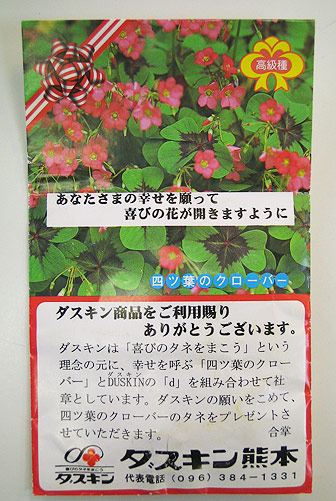 高級種
あなたさまの幸せを願って
喜びの花が開きますように
四ツ葉のクローバー
ダスキン商品をご利用賜り
ありがとうございます。
ダスキンは「喜びのタネをまこう」という
理念の元に、幸せを呼ぶ「四ツ葉のクロー
ダスキン
バー」とDUSKINの「d」を組み合わせて社
章としています。ダスキンの願いをこめて、
四ツ葉のクローバーのタネをプレゼントさ
せていただきます。 合掌
喜びのタネをまこう
ダスキン
ダスキン熊本
代表電話(096)384-1331